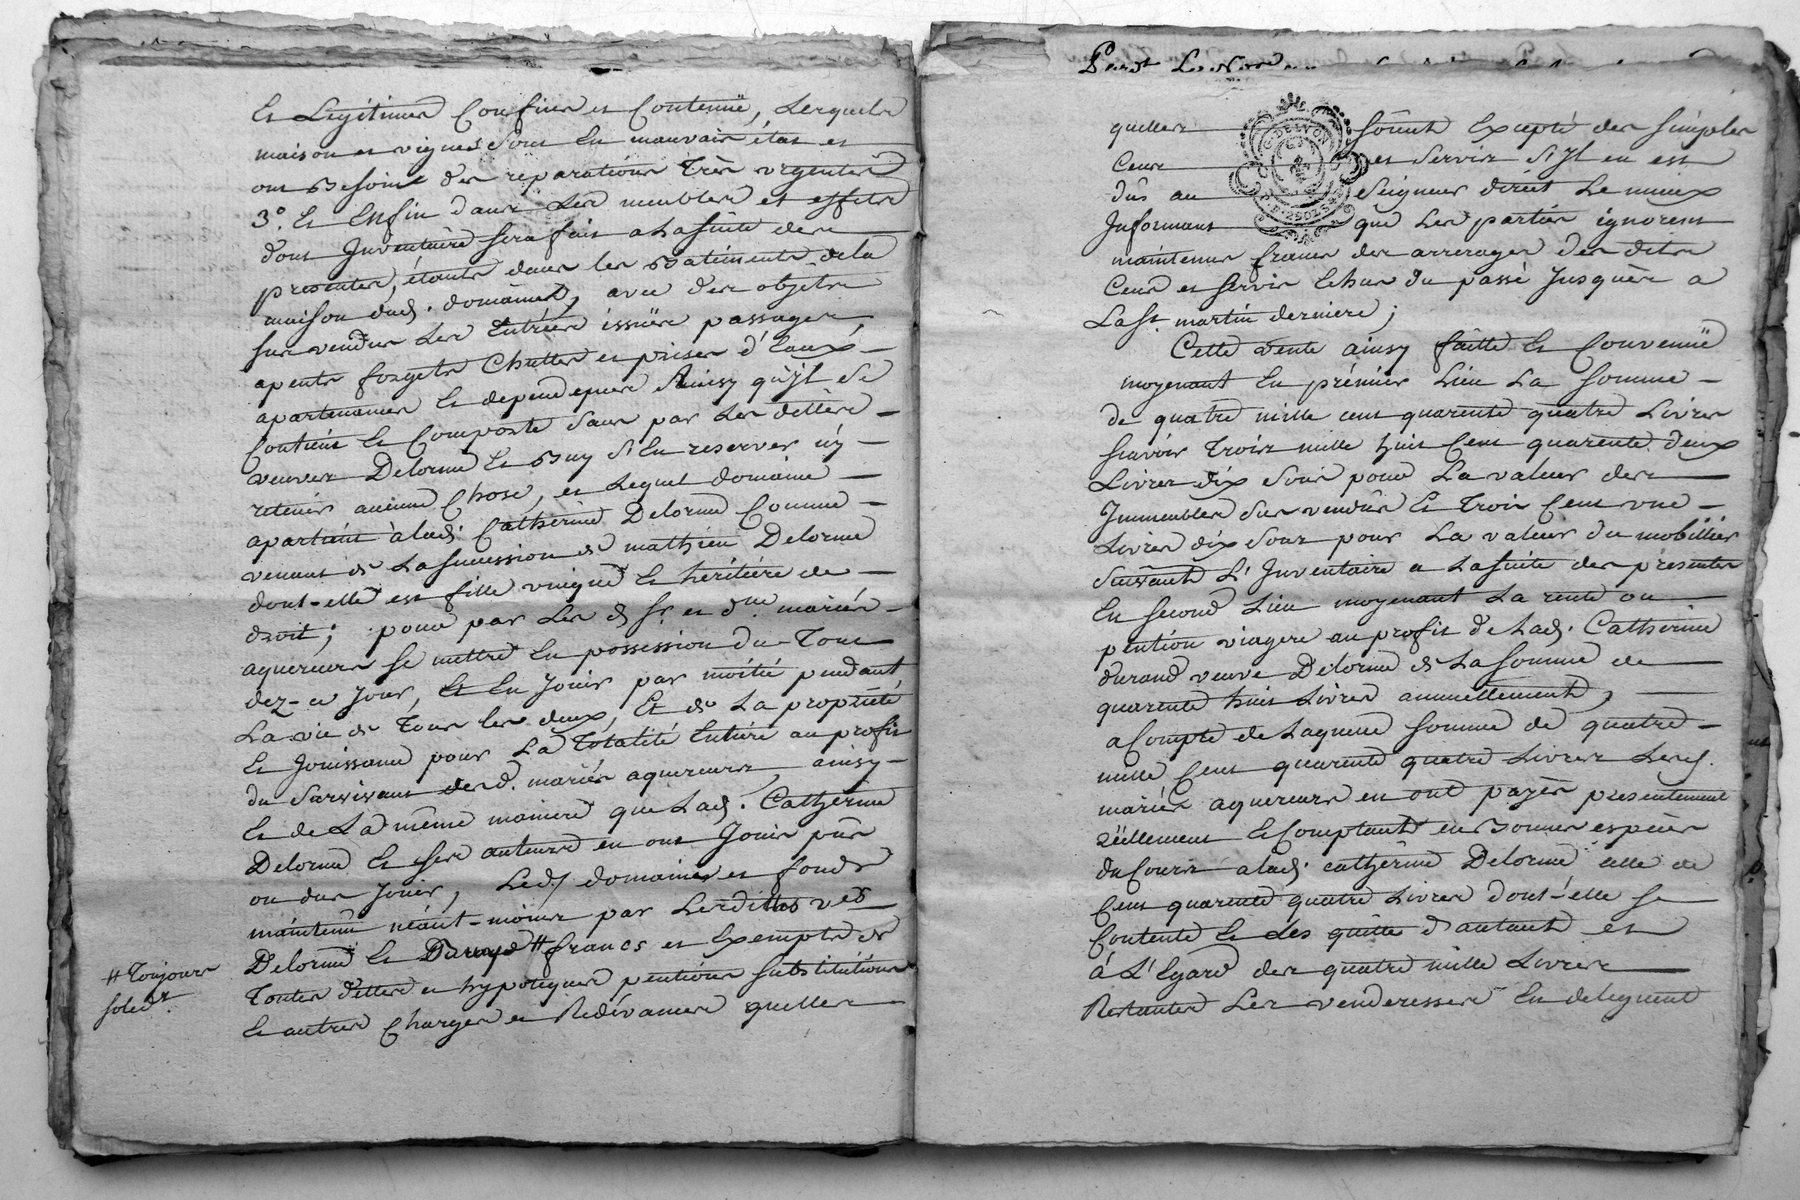 et Legitimes Confins et Contenüe, Lesquels
maison et vignes Sont En mauvais état et
ont Besoins des réparations Très urgentes
3°. Et Enfin dans Les meubles et effets
dont Inventaire sera fait a La suite des
presentes, étants dans les Batiments de la
maison dud. domaines, avec des objets
sus vendus Les Entrées issües passages,
apents forgets Chuttes et prises d'Eaux
apartenances Et dependences Ainsy qu'jl Se
Contient Et Comporte sans par Les dittes
veuves Delorme Et Buy S'En reserver n'y
retenir aucune Chose, et Lequel domaine
apartient à lad. Catherine Delorme Comme
venant de La succession de mathieu Delorme
dont-elle est fille unique Et héritiere de
droit; pour par Les d. Sr. et dme mariés
aquereurs se mettre En possession du Tout
dez-ce jour, Et En Jouir par moitié pendant
La vie de Tous les deux, Et de La propriété
Et Jouissance pour La Totalité Entière au profit
du Survivant desd. mariés aquereurs, ainsy
Et de La même maniere que Lad. Catherine
Delorme Et ses auteurs en ont Joüis pûs
ou dus Jouir, Led. domaines et fonds
maintenu néant-moins par Lesdittes ves
Delorme Et # francs et Exempts de
Toutes dettes et hypoteques pentions substitutions
Et autres Charges et Redévances quelles
# Toujours
solidt.
quelles Soient Excepté des simples
Cens et Servis S'Jl en est
dûs au Seigneur direct Le mieux
Informant que Les parties ignorent
maintenus francs des arrerages des dits
Cens et servis Echus du passé Jusques a
La St. martin derniere;
Cette vente ainsy faitte Et Convenüe
moyenant En prémier Lieu La Somme
de quatre mille cent quarente quatre Livres
sçavoir Trois mille huit Cent quarente deux
Livres dix Sous pour La valeur des
Immeubles Sus vendûs Et Trois Cent une
Livres dix Sous pour La valeur du mobillier
Suivant L'Inventaire a La suite des présentes
En second Lieu moyenant La rente ou
pention viagere au profit de Lad. Catherine
durand veuve Delorme de La somme de
quarente huit Livres annuellement,
a Compte de Laquelle somme de quatre
mille Cent quarente quatre Livres Lesd.
mariés aquereurs en ont payés presentement
réellement Et Comptant en Bonnes espèces
du Cours a lad. catherine Delorme celle de
Cent quarente quatre Livres dont-elle se
Contente Et Les quitte d'autant et
à L'Egard des quatre mille Livres
Restantes Les venderesses En deleguent